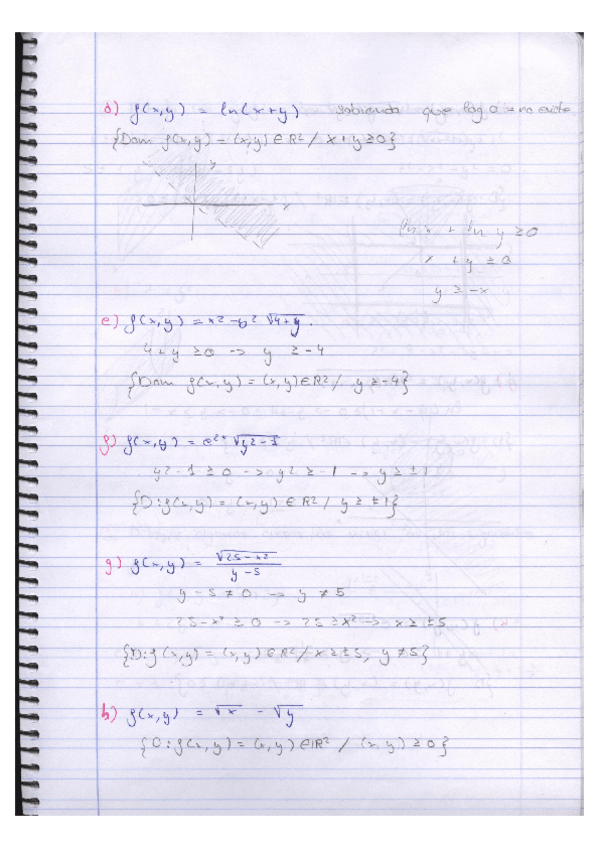 d) f(x,y) = ln(x+y) sabiendo que log 0 = no existe
{Dom f(x,y) = (x,y) ∈ R² / x+y ≥ 0}
y
x
ln x + ln y ≥ 0
x + y ≥ 0
y ≥ -x
e) f(x,y) = x² - y² √4+y.
4+y ≥ 0 -> y ≥ -4
{Dom f(x,y) = (x,y) ∈ R² / y ≥ -4}
f) f(x,y) = e²ˣ √y²-1
y²-1 ≥ 0 -> y² ≥ -1 -> y ≥ ±1
{D: f(x,y) = (x,y) ∈ R² / y ≥ ±1}
g) f(x,y) = √25-x² / y-5
y-5 ≠ 0 -> y ≠ 5
25-x² ≥ 0 -> 25 ≥ x² -> x ≥ ±5
{D: f(x,y) = (x,y) ∈ R² / x ≥ ±5, y ≠ 5}
h) f(x,y) = √x - √y
{D: f(x,y) = (x,y) ∈ R² / (x,y) ≥ 0}